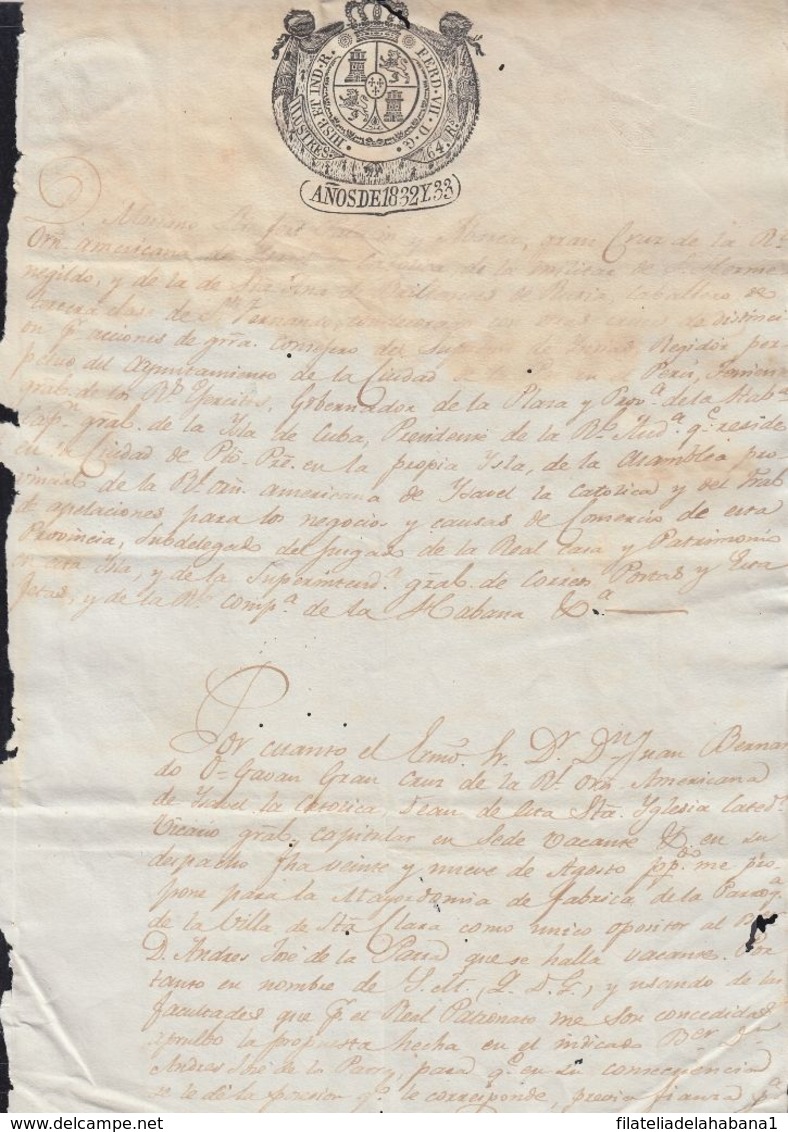 HISP. ET IND. R. FERD. VII. D. G.
ILLUSTRES. 64. Rs.
AÑOS DE 1832 Y 33
D. Mariano y gran Cruz de la Rl.
Orn. americana de de la militar de Sn. Herme
negildo, y de la de Sta. Ana de Brillantes de Rusia, Caballero de
tercera clase de Sn. Fernando, condecorado con otras cruces de distinci
on pr. acciones de grra. Consejero del Supremo de Regidor per
petuo del Ayuntamiento de la Ciudad en Perú, Tenien
gral. de los Rs. Ejercitos, Gobernador de la Plaza y Prova. de la Hab
Capn. gral. de la Ysla de Cuba, Presidente de la Rl. Auda. qe. reside
en la Ciudad de Pto. Pre. en la propia Ysla, de la Asamblea pro
vincial de la Rl. orn. americana de Ysavel la Catolica y del Trab
de apelaciones para los negocios y causas de Comercio de esta
Provincia, Subdelegado del juzgado de la Real Casa y Patrimonio
en esta Ysla, y de la Superintenda. gral. de Correos Postas y Esta
fetas, y de la Rl. Compa. de la Habana &a
Por cuanto el Exmo. Sr. Dr. Dn. Juan Bernar
do O-Gavan Gran Cruz de la Rl. Orn. Americana
de Ysavel la Catolica Dean de esta Sta. Yglesia Cated.
Vicario gral. capitular en Sede Vacante & en su
despacho fha veinte y nueve de Agosto ppdo. me pro
pone para la Mayordomia de Fabrica de la Parroqa.
de la Villa de Sta. Clara como unico opositor al
D. Andres José de la Parra que se halla vacante. Por
tanto en nombre de S. M. (Q. D. G.) y usando de las
facultades que pr. el Real Patronato me son concedidas
apruebo la propuesta hecha en el indicado Ber. Dn.
Andres José de la Parra, para qe. en su consecuencia
se le dé la posesion qe. le corresponde, previa fianza pa.
© filateliadelahabana1